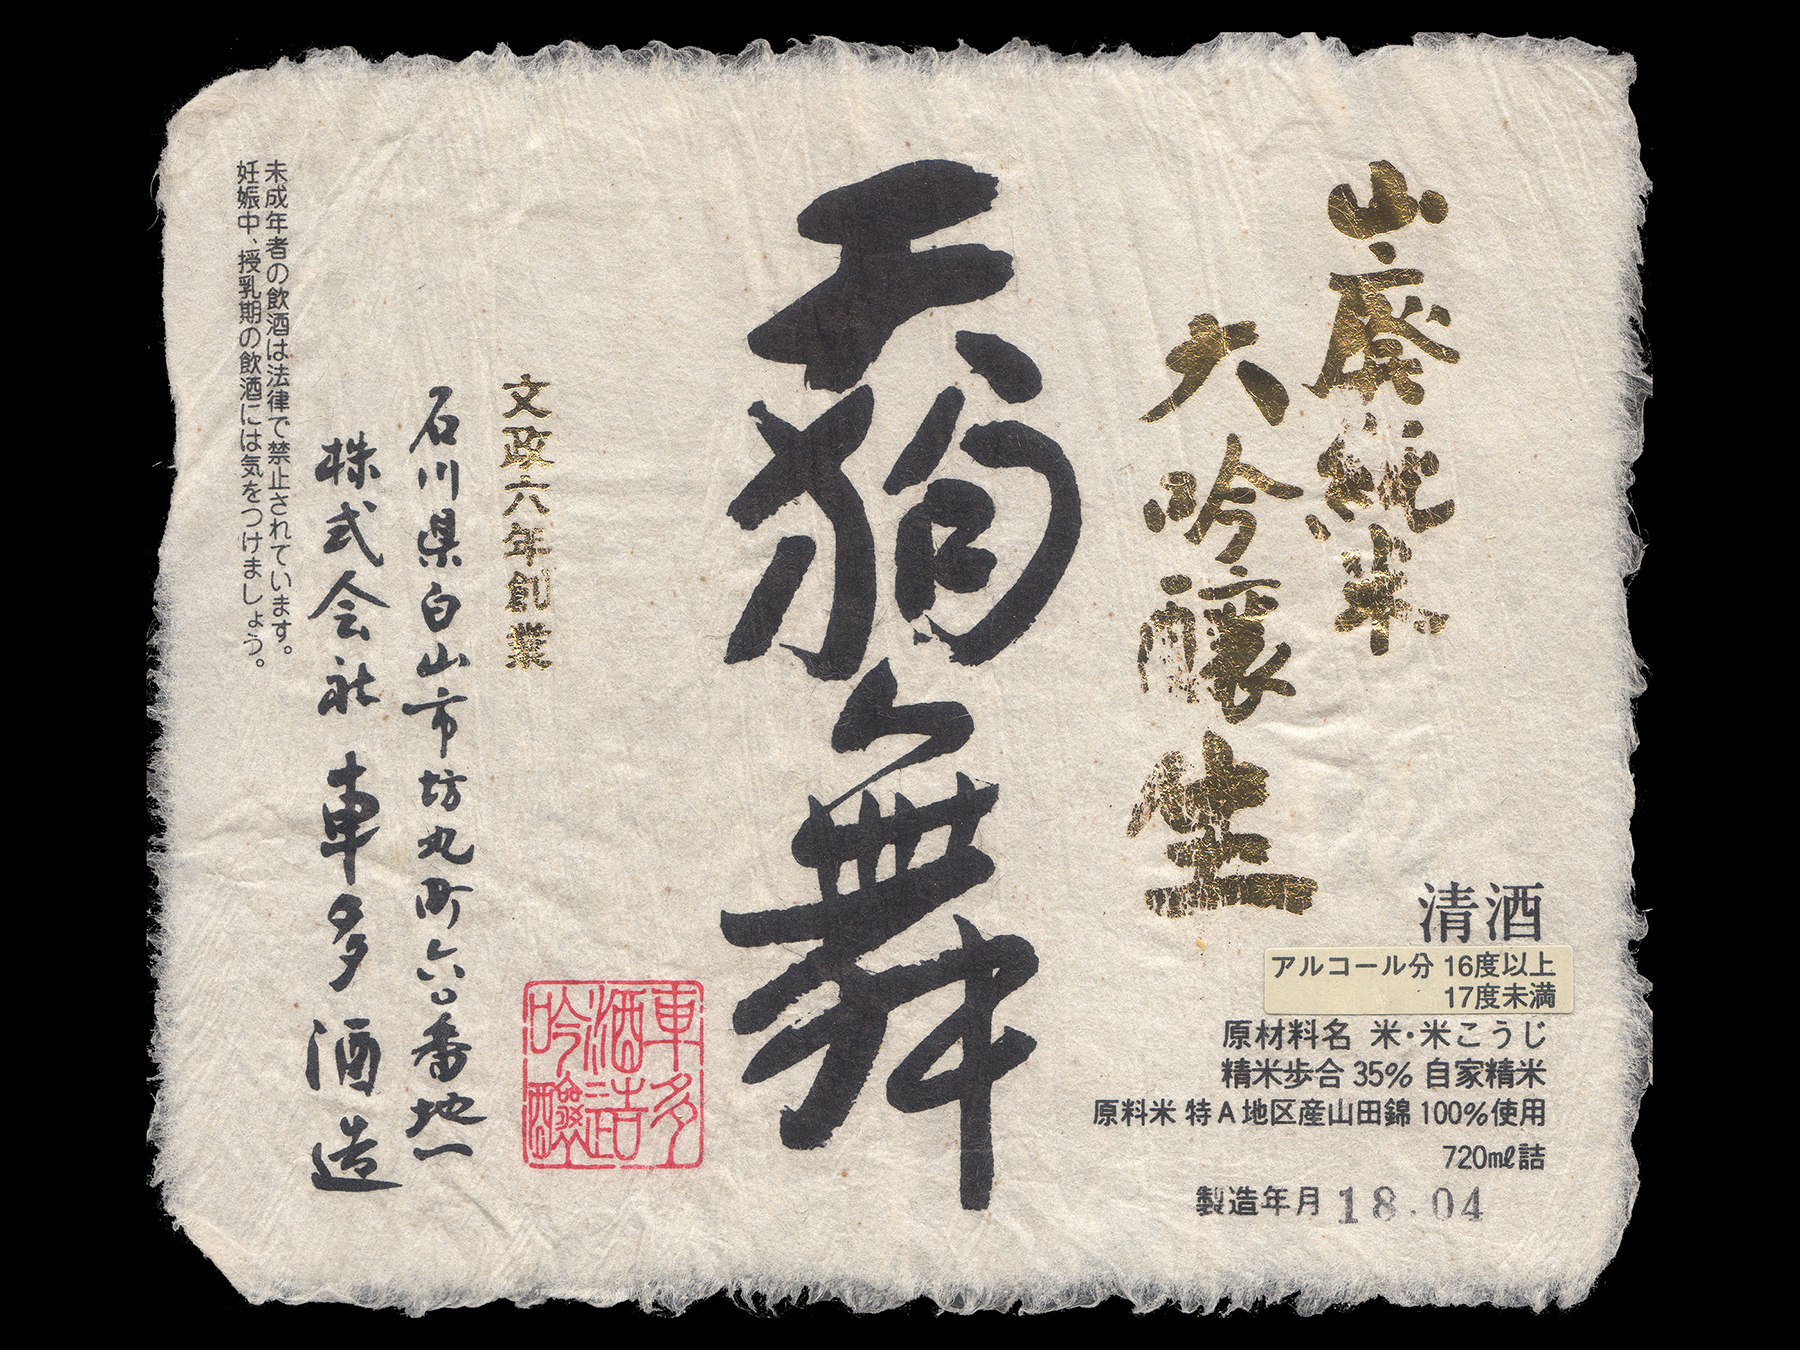 山廃純米
大吟醸生
清酒
アルコール分 16度以上
17度未満
原材料名 米・米こうじ
精米歩合 35% 自家精米
原料米 特A地区産山田錦 100%使用
720mℓ詰
製造年月 18.04
天狗舞
車多
酒造
吟醸
文政六年創業
石川県白山市坊丸町六〇番地一
株式会社 車多酒造
未成年者の飲酒は法律で禁止されています。
妊娠中、授乳期の飲酒には気をつけましょう。